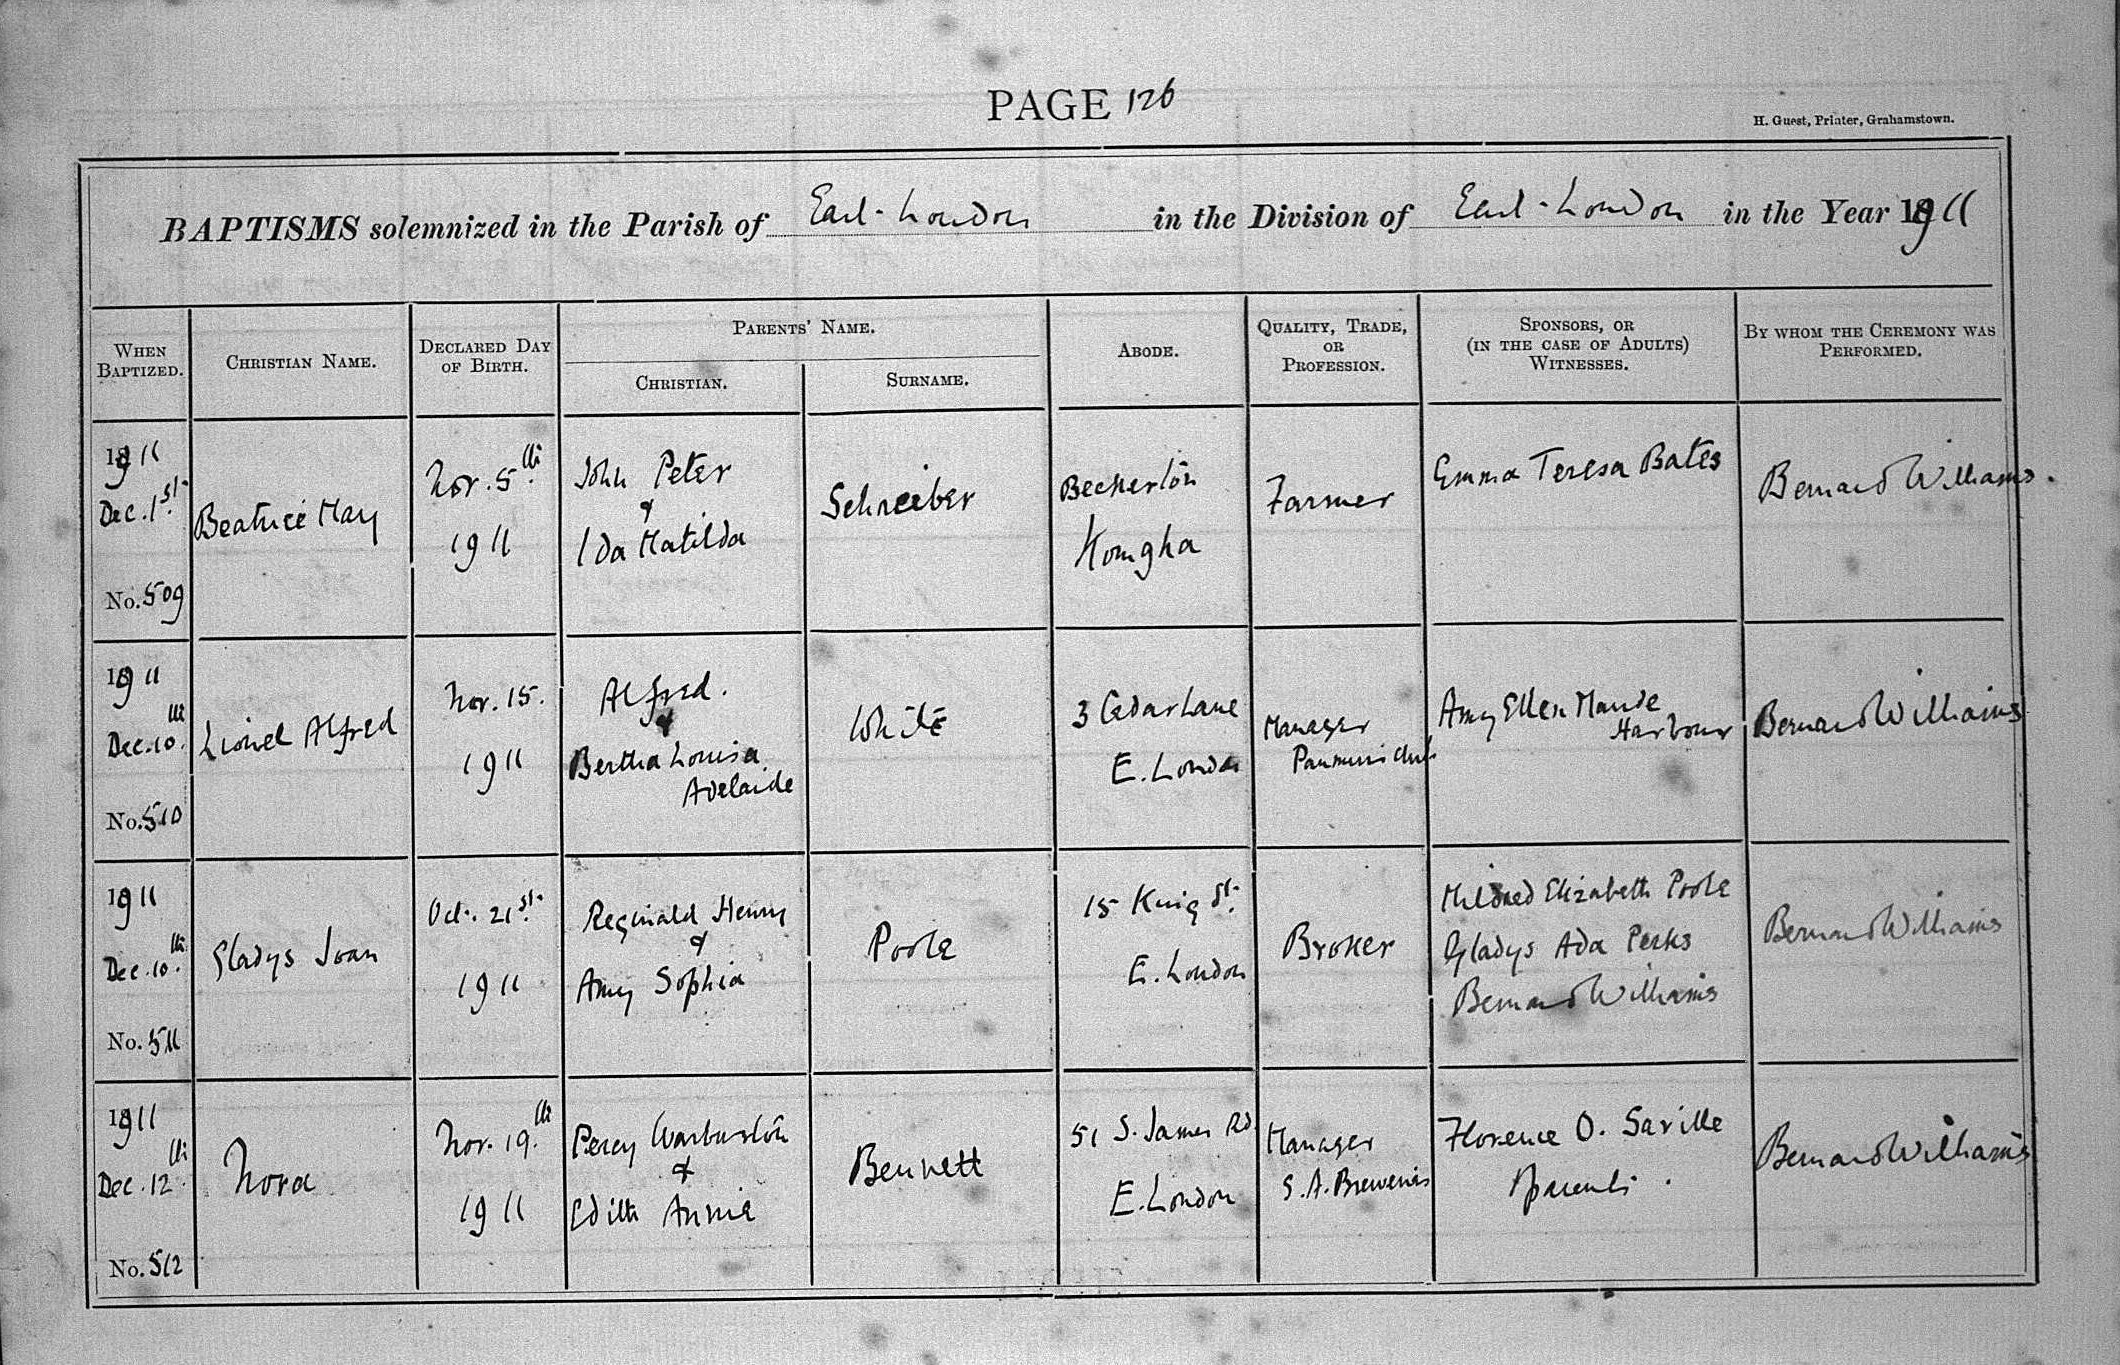 PAGE 126
H. Guest, Printer, Grahamstown.
BAPTISMS solemnized in the Parish of East-London in the Division of East-London in the Year 1911
WHEN BAPTIZED.
CHRISTIAN NAME.
DECLARED DAY OF BIRTH.
PARENTS' NAME.
CHRISTIAN.
SURNAME.
ABODE.
QUALITY, TRADE, OR PROFESSION.
SPONSORS, OR (IN THE CASE OF ADULTS) WITNESSES.
BY WHOM THE CEREMONY WAS PERFORMED.
1911
Dec. 1st.
No. 509
Beatrice May
Nov. 5th.
1911
John Peter
&
Ida Matilda
Schreiber
Komgha
Farmer
Emma Teresa Bates
Bernard Williams.
1911
Dec. 10th.
No. 510
Lionel Alfred
Nov. 15.
1911
Alfred.
&
Bertha Louisa
Adelaide
White
3 Cedar Lane
E. London
Manager
Amy Ellen Maude
Harbour
Bernard Williams
1911
Dec. 10th.
No. 511
Gladys Joan
Oct. 21st.
1911
Reginald Henry
&
Amy Sophia
Poole
15 King St.
E. London
Broker
Mildred Elizabeth Poole
Gladys Ada Perks
Bernard Williams
Bernard Williams
1911
Dec. 12th.
No. 512
Nora
Nov. 19th.
1911
Percy Warburton
&
Edith Annie
Bennett
51 S. James Rd
E. London
Manager
S. A. Breweries
Florence O. Saville
Bernard Williams